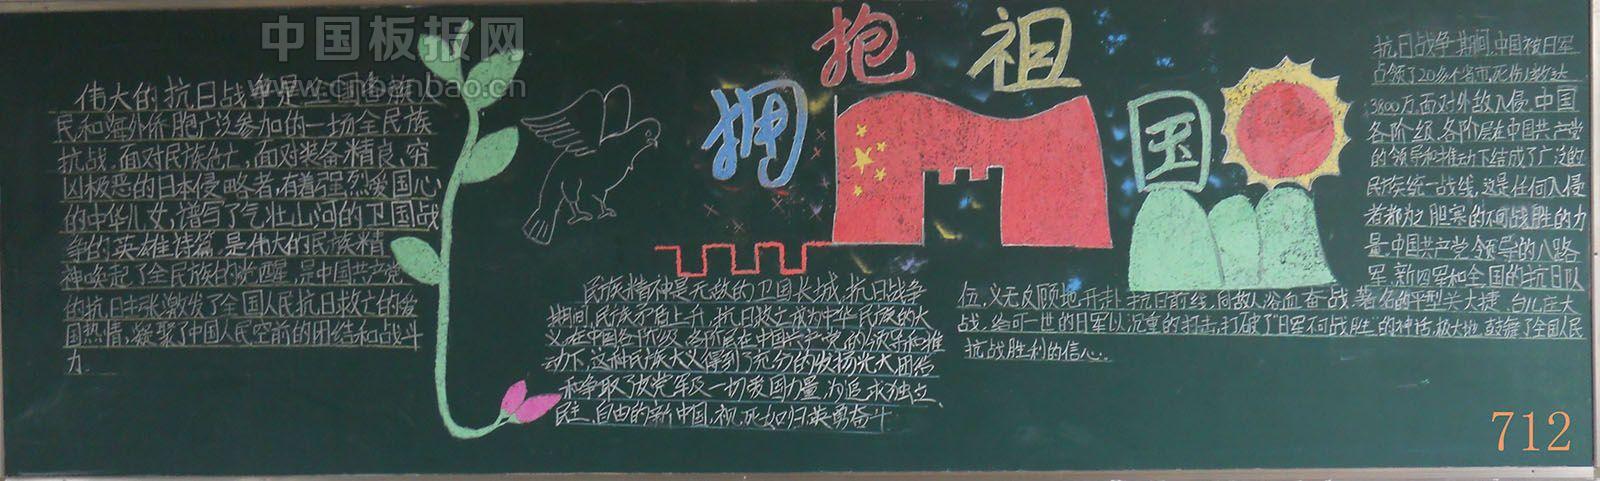 中国板报网
cnbanbao.com
拥抱祖国
伟大的抗日战争是全国各族人
民和海外侨胞广泛参加的一场全民族
抗战。面对民族危亡,面对装备精良、穷
凶极恶的日本侵略者,有着强烈爱国心
的中华儿女,谱写了气壮山河的卫国战
争的英雄诗篇,是伟大的民族精
神唤起了全民族的觉醒,是中国共产党
的抗日主张激发了全国人民抗日救亡的爱
国热情,凝聚了中国人民空前的团结和战斗
力.
民族精神是无敌的卫国长城,抗日战争
期间,民族矛盾上升,抗日救亡成为中华民族的大
义.在中国各阶级、各阶层在中国共产党的领导和推
动下,这种民族大义得到了充分的发扬光大,团结
和争取了友党军及一切爱国力量,为追求独立、
民主、自由的新中国,视死如归英勇奋斗
抗日战争期间,中国被日军
占领了20多个省市,死伤人数达
3800万.面对外敌入侵.中国
各阶级、各阶层在中国共产党
的领导和推动下结成了广泛的
民族统一战线,这是任何入侵
者都为之胆寒的不可战胜的力
量.中国共产党领导的八路
军、新四军和全国的抗日队
伍,义无反顾地开赴抗日前线,同敌人浴血奋战.著名的平型关大捷,台儿庄大
战,给可一世的日军以沉重的打击,打破了日军不可战胜的神话,极大地鼓舞了全国人民
抗战胜利的信心.
712